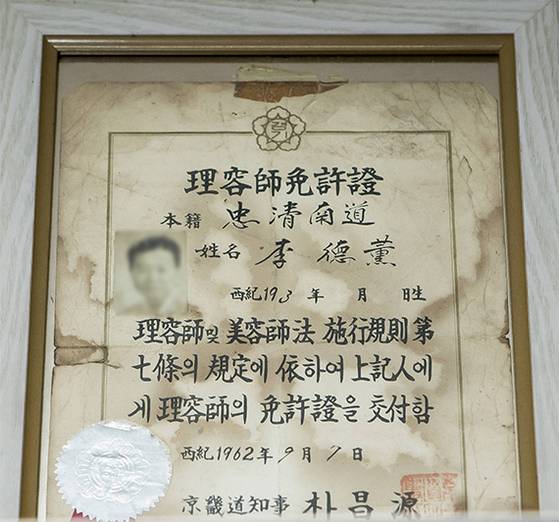 理容師免許證
本籍 忠淸南道
姓名 李德薰
西紀193 年 月 日生
理容師 및 美容師法 施行規則第
七條의 規定에 依하여 上記人에
게 理容師의 免許證을 交付함
西紀1962年 9月 7日
京畿道知事 朴昌源